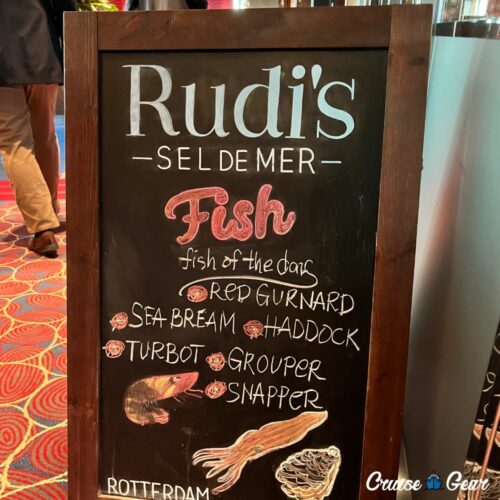 Rudi's
-SEL DE MER-
Fish
fish of the day
RED GURNARD
SEA BREAM HADDOCK
TURBOT GROUPER
SNAPPER
ROTTERDAM
Cruise Gear